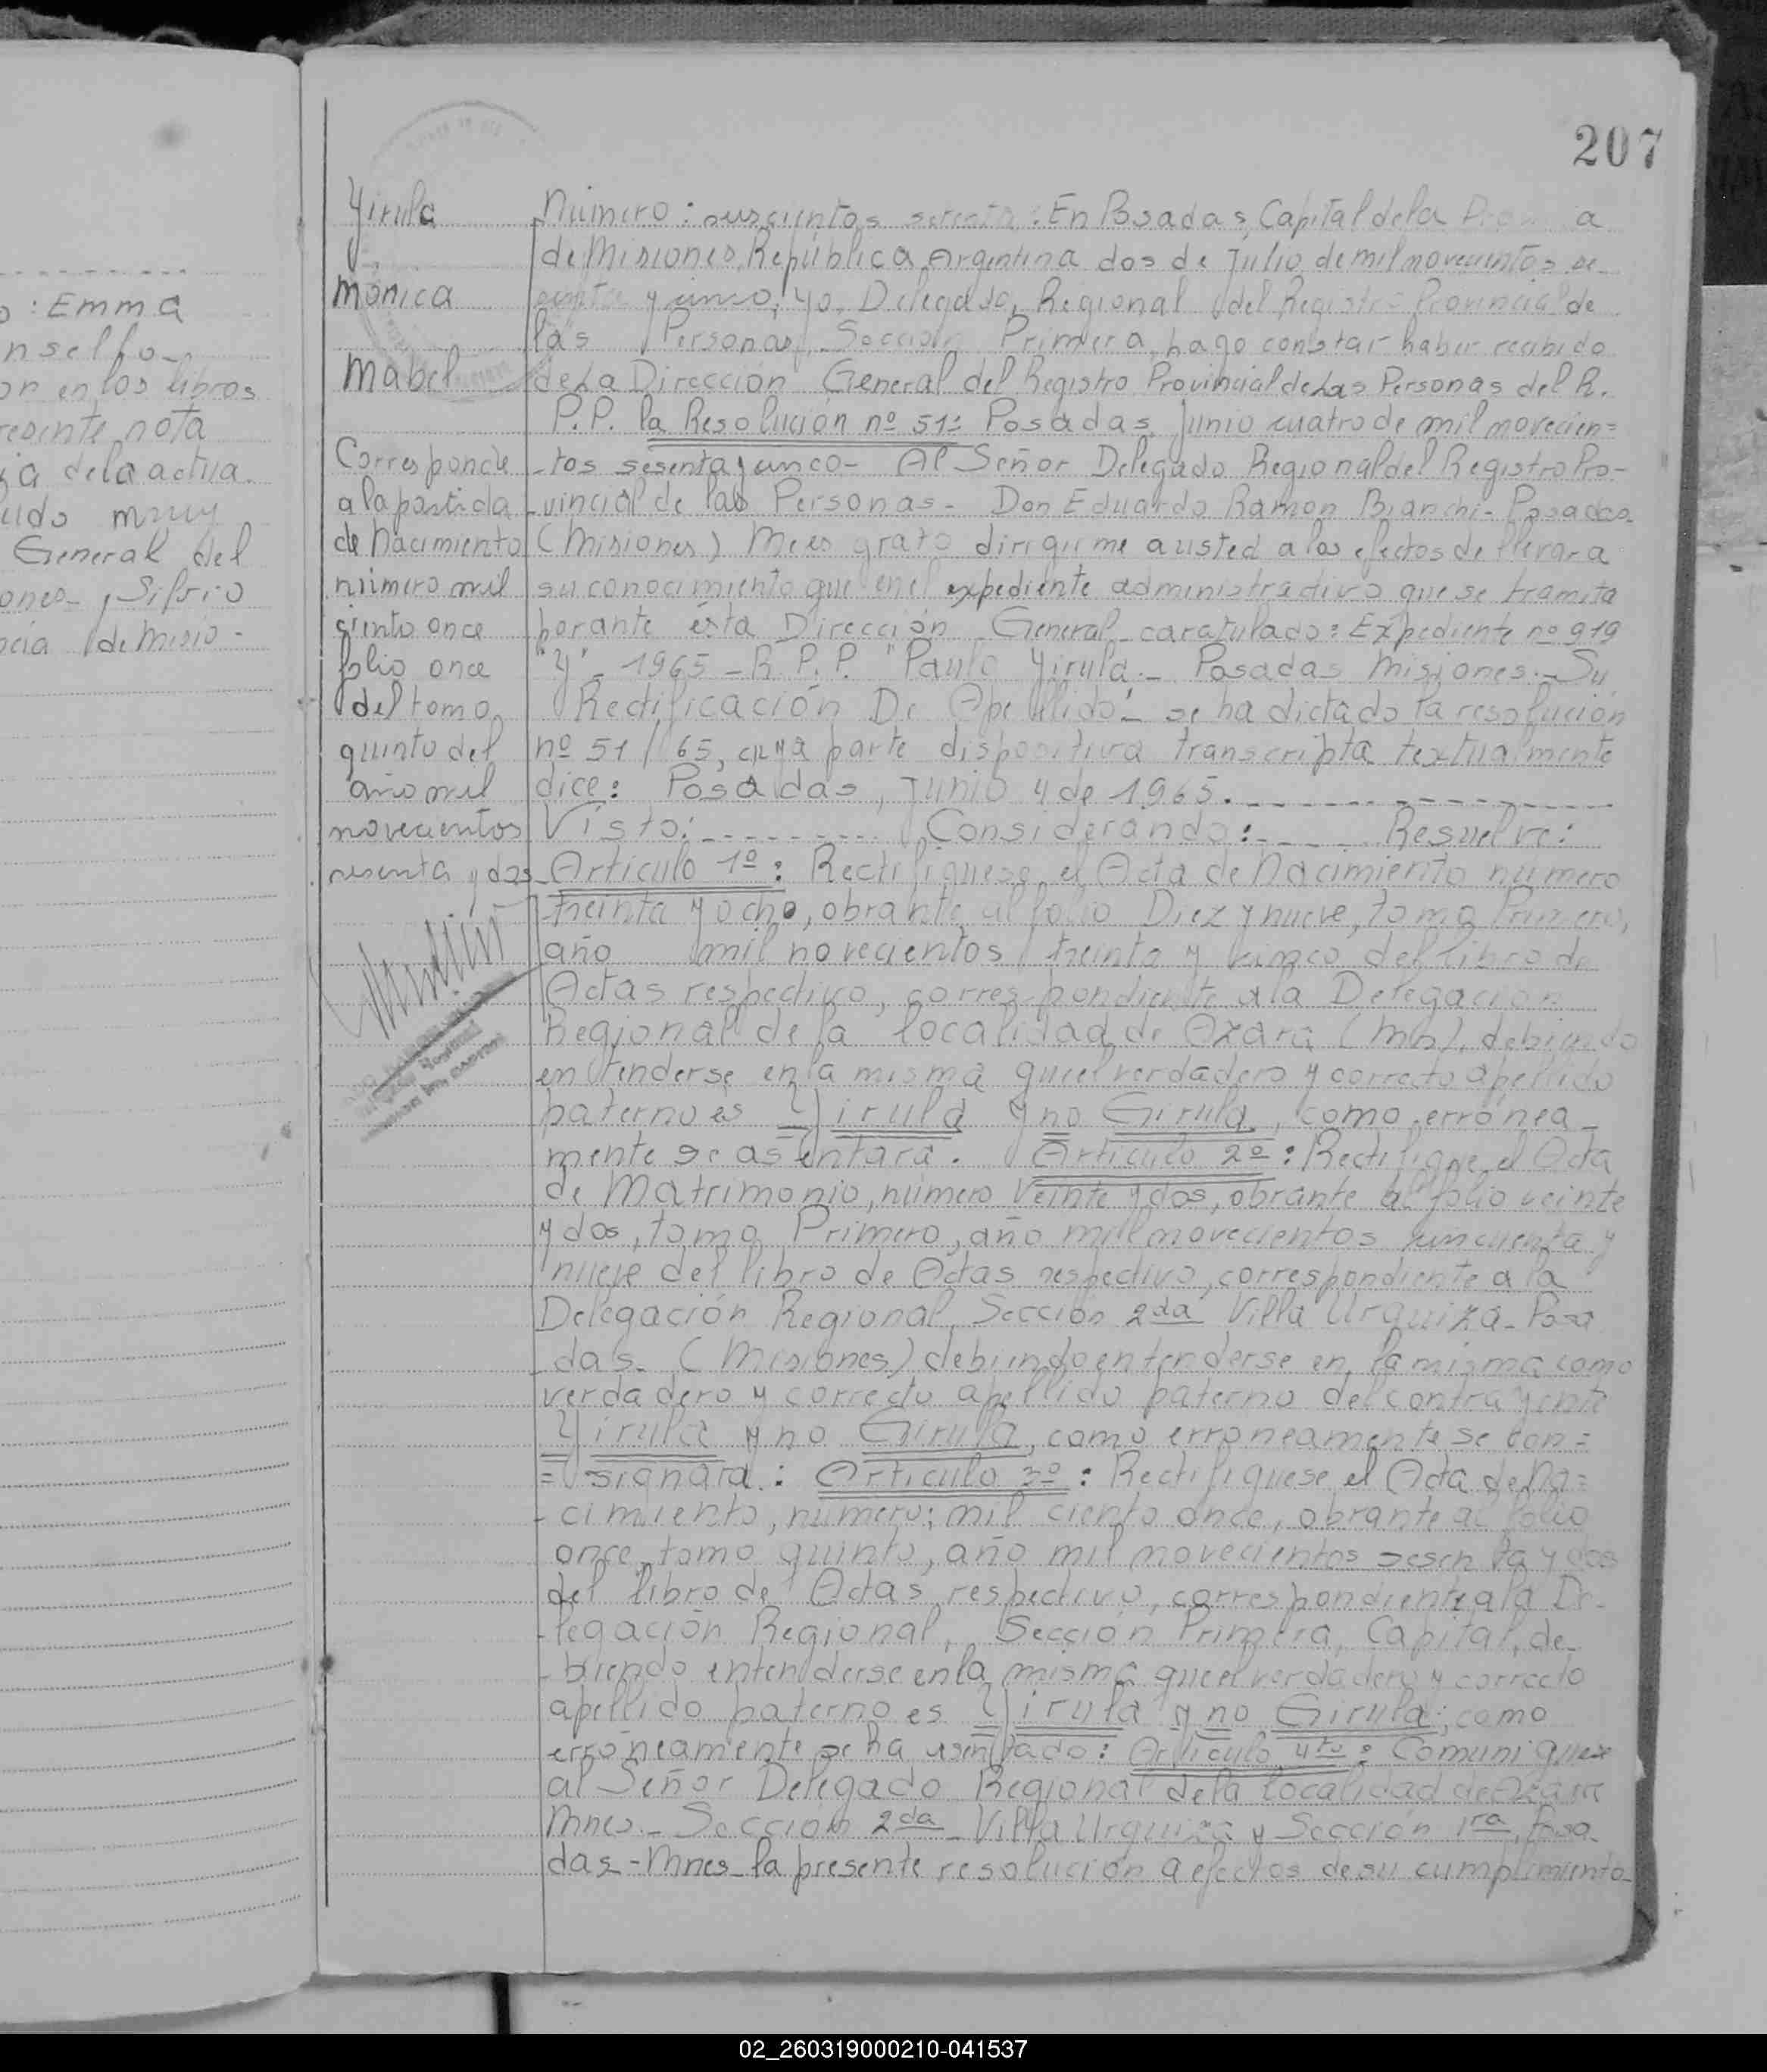 207
o : Emma
nselfo-
or en los libros
resente nota
ia dela actua.
udo muy
General del
ones-, Silvio
ncia de Misio-
Yirula
Mónica
Mabel
Corresponde
a la partida
de Nacimiento
número mil
ciento once
folio once
del tomo
quinto del
año mil
novecientos
sesenta y dos
Número: En Posadas, Capital de la
de Misiones, República Argentina dos de Julio de mil novecientos se-
senta y cinco; yo, Delegado, Regional del Registro Provincial de
las Personas, Sección Primera, hago constar haber recibido
de La Dirección General del Registro Provincial de Las Personas del R.
P.P. la Resolución nº 51: Posadas, Junio cuatro de mil novecien=
-tos sesenta y cinco- Al Señor Delegado Regional del Registro Pro-
-vincial de las Personas- Don Eduardo Ramon Bianchi- Posadas-
(Misiones) Me es grato dirigirme a usted a los efectos de llevar a
su conocimiento que en el expediente administrativo que se tramita
por ante ésta Dirección General caratulado: Expediente nº 919
"Y"- 1965 - R.P.P. "Paulo Yirula.- Posadas Misiones.- Su
Rectificación De Apellido"- se ha dictado la resolución
nº 51 / 65, cuya parte dispositiva transcripta textualmente
dice: Posadas, Junio 4 de 1965.
Visto: Considerando: Resuelve:
Artículo 1º: Rectifíquese el Acta de Nacimiento número
treinta y ocho, obrante al folio Diez y nueve, tomo Primero,
año mil novecientos treinta y cinco del libro de
Actas respectivo, correspondiente a la Delegación
Regional de la localidad de Azara (Mns), debiendo
entenderse en la misma que el verdadero y correcto apellido
paterno es Yirula y no Girula, como errónea-
mente se asentara. Artículo 2º: Rectifique el Acta
de Matrimonio, número veinte y dos, obrante al folio veinte
y dos, tomo Primero, año mil novecientos cincuenta y
nueve del libro de Actas respectivo, correspondiente a la
Delegación Regional Sección 2da Villa Urquiza- Posa
-das- (Misiones) debiendo entenderse en la misma como
verdadero y correcto apellido paterno del contrayente
Yirula y no Girula, como erroneamente se con=
=signara.: Artículo 3º: Rectifíquese el Acta de Na=
-cimiento, número; mil ciento once, obrante al folio
once, tomo quinto, año mil novecientos sesenta y dos
del libro de Actas respectivo, correspondiente a la De-
-legación Regional, Sección Primera, Capital, de-
-biendo entenderse en la misma que el verdadero y correcto
apellido paterno es Yirula y no Girula; como
erróneamente se ha asentado: Artículo 4to: Comuníquese
al Señor Delegado Regional de la localidad de Azara
Mnes.- Sección 2da Villa Urquiza y Sección 1ra, Posa-
das-Mnes- la presente resolución a efectos de su cumplimiento-
02_260319000210-041537